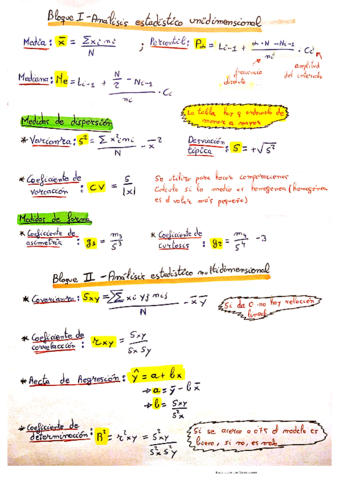 Bloque I - Análisis estadístico unidimensional
Media: x̄ = Σ xi ni / N ; Percentil: Ph = Li-1 + (h·N - Ni-1) / ni · Ci
frecuencia absoluta
amplitud del intervalo
Mediana: Me = Li-1 + (N/2 - Ni-1) / ni · Ci
La tabla hay q ordenarla de menor a mayor
Medidas de dispersión
* Varianza: S² = Σ x²i ni / N - x̄²
Desviación típica: S = +√S²
* Coeficiente de variación: CV = S / |x̄|
Se utiliza para hacer comparaciones
Calcula si la media es homogénea (homogénea
es el valor más pequeño)
Medidas de forma
* Coeficiente de asimetría: g1 = m3 / S³
* Coeficiente de curtosis: g2 = m4 / S⁴ - 3
Bloque II - Análisis estadístico multidimensional
* Covarianza: Sxy = ΣΣ xi yj nij / N - x̄ ȳ
Si da 0 no hay relación lineal
* Coeficiente de correlación: rxy = Sxy / Sx Sy
* Recta de Regresión: ŷ = a + bx
→ a = ȳ - b x̄
→ b = Sxy / S²x
* Coeficiente de determinación: R² = r²xy = S²xy / S²x S²y
Si se acerca a 0'75 el modelo es
bueno, si no, es malo